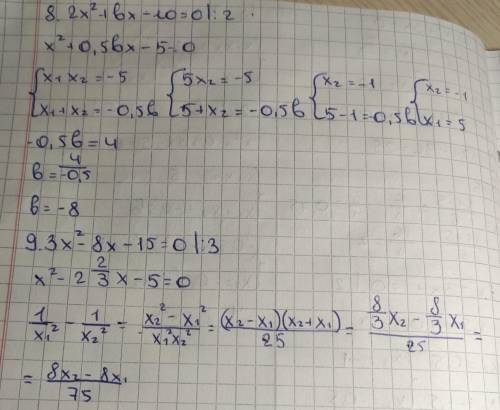 8. 2x²+bx-10=0 |:2
x²+0,5bx-5=0
{x₁x₂=-5 {5x₂=-5 {x₂=-1 {x₂=-1
{x₁+x₂=-0,5b {5+x₂=-0,5b {5-1=-0,5b {x₁=5
-0,5b=4
b=4/-0,5
b=-8
9. 3x²-8x-15=0 |:3
x²-2 2/3 x-5=0
1/x₁² - 1/x₂² = (x₂²-x₁²)/(x₁²x₂²) = (x₂-x₁)(x₂+x₁)/25 = (8/3 x₂ - 8/3 x₁)/25 =
= (8x₂-8x₁)/75